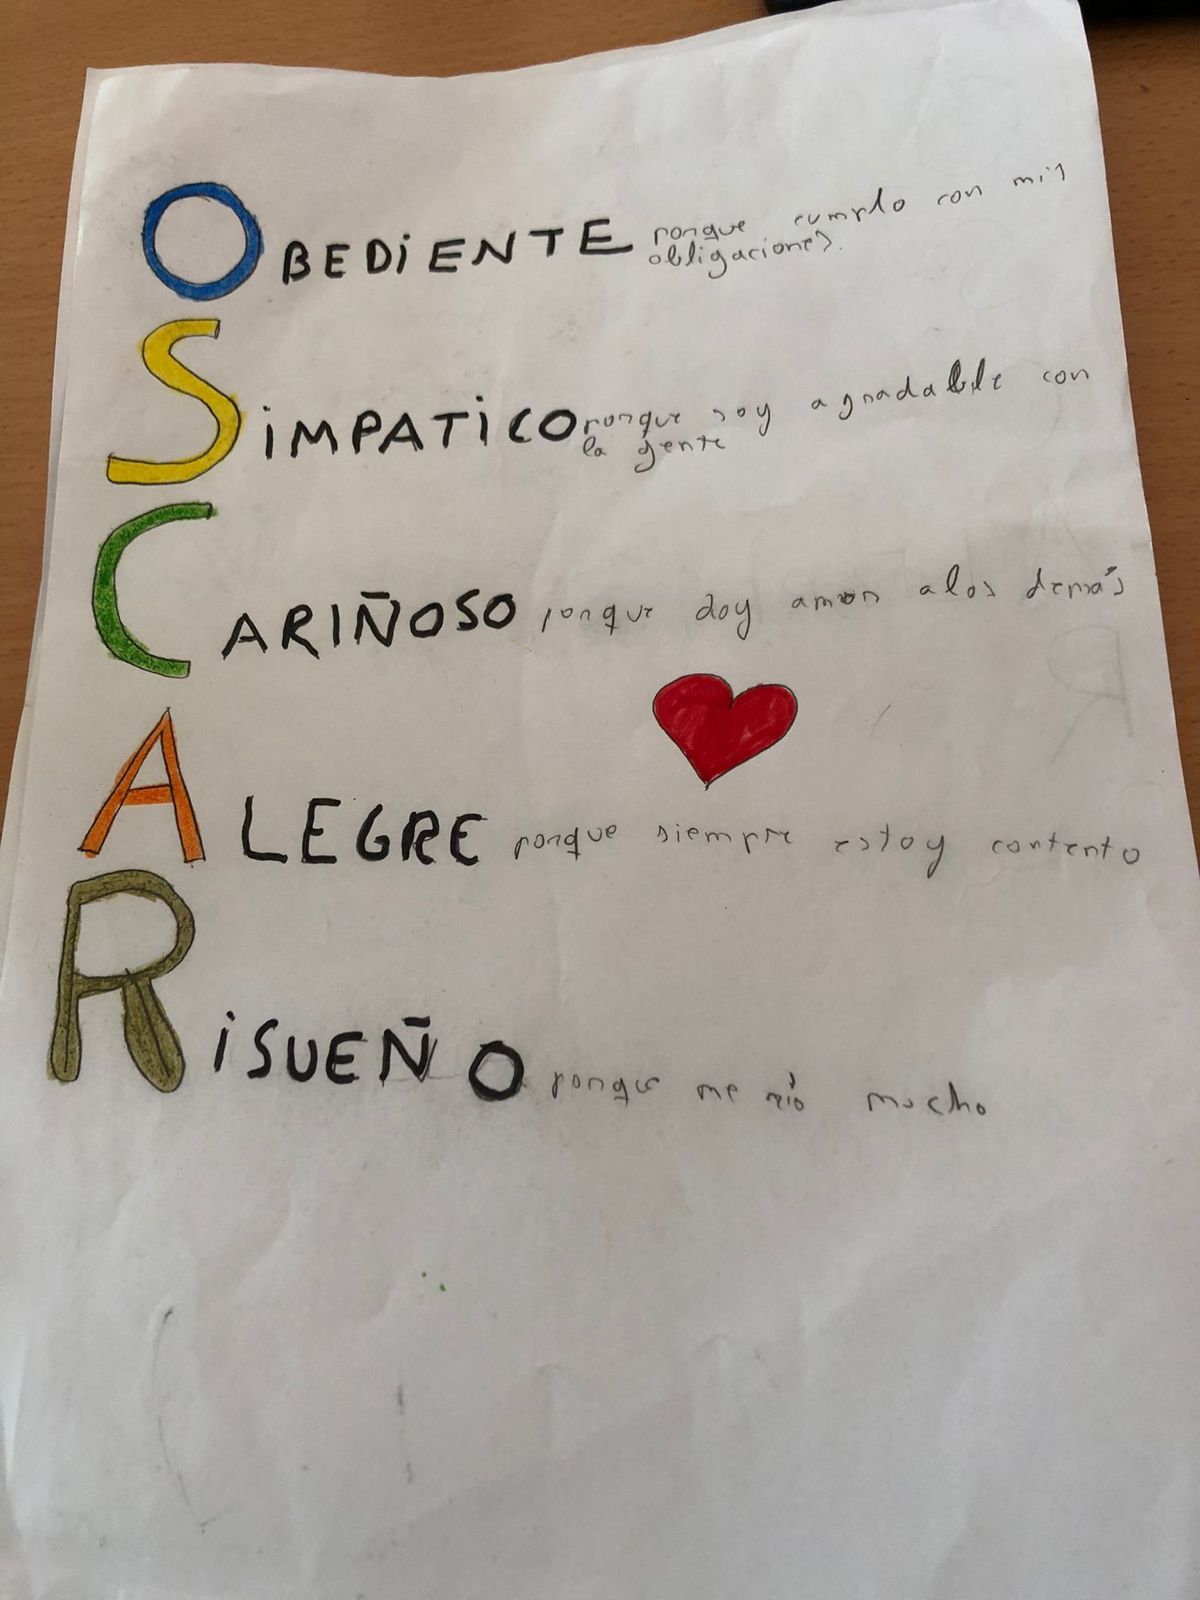 OBEDiENTE porque cumplo con mis
obligaciones.
SiMPATiCO porque soy agradable con
la gente
CARIÑOSO porque doy amor a los demás
ALEGRE porque siempre estoy contento
RiSUEÑO porque me río mucho